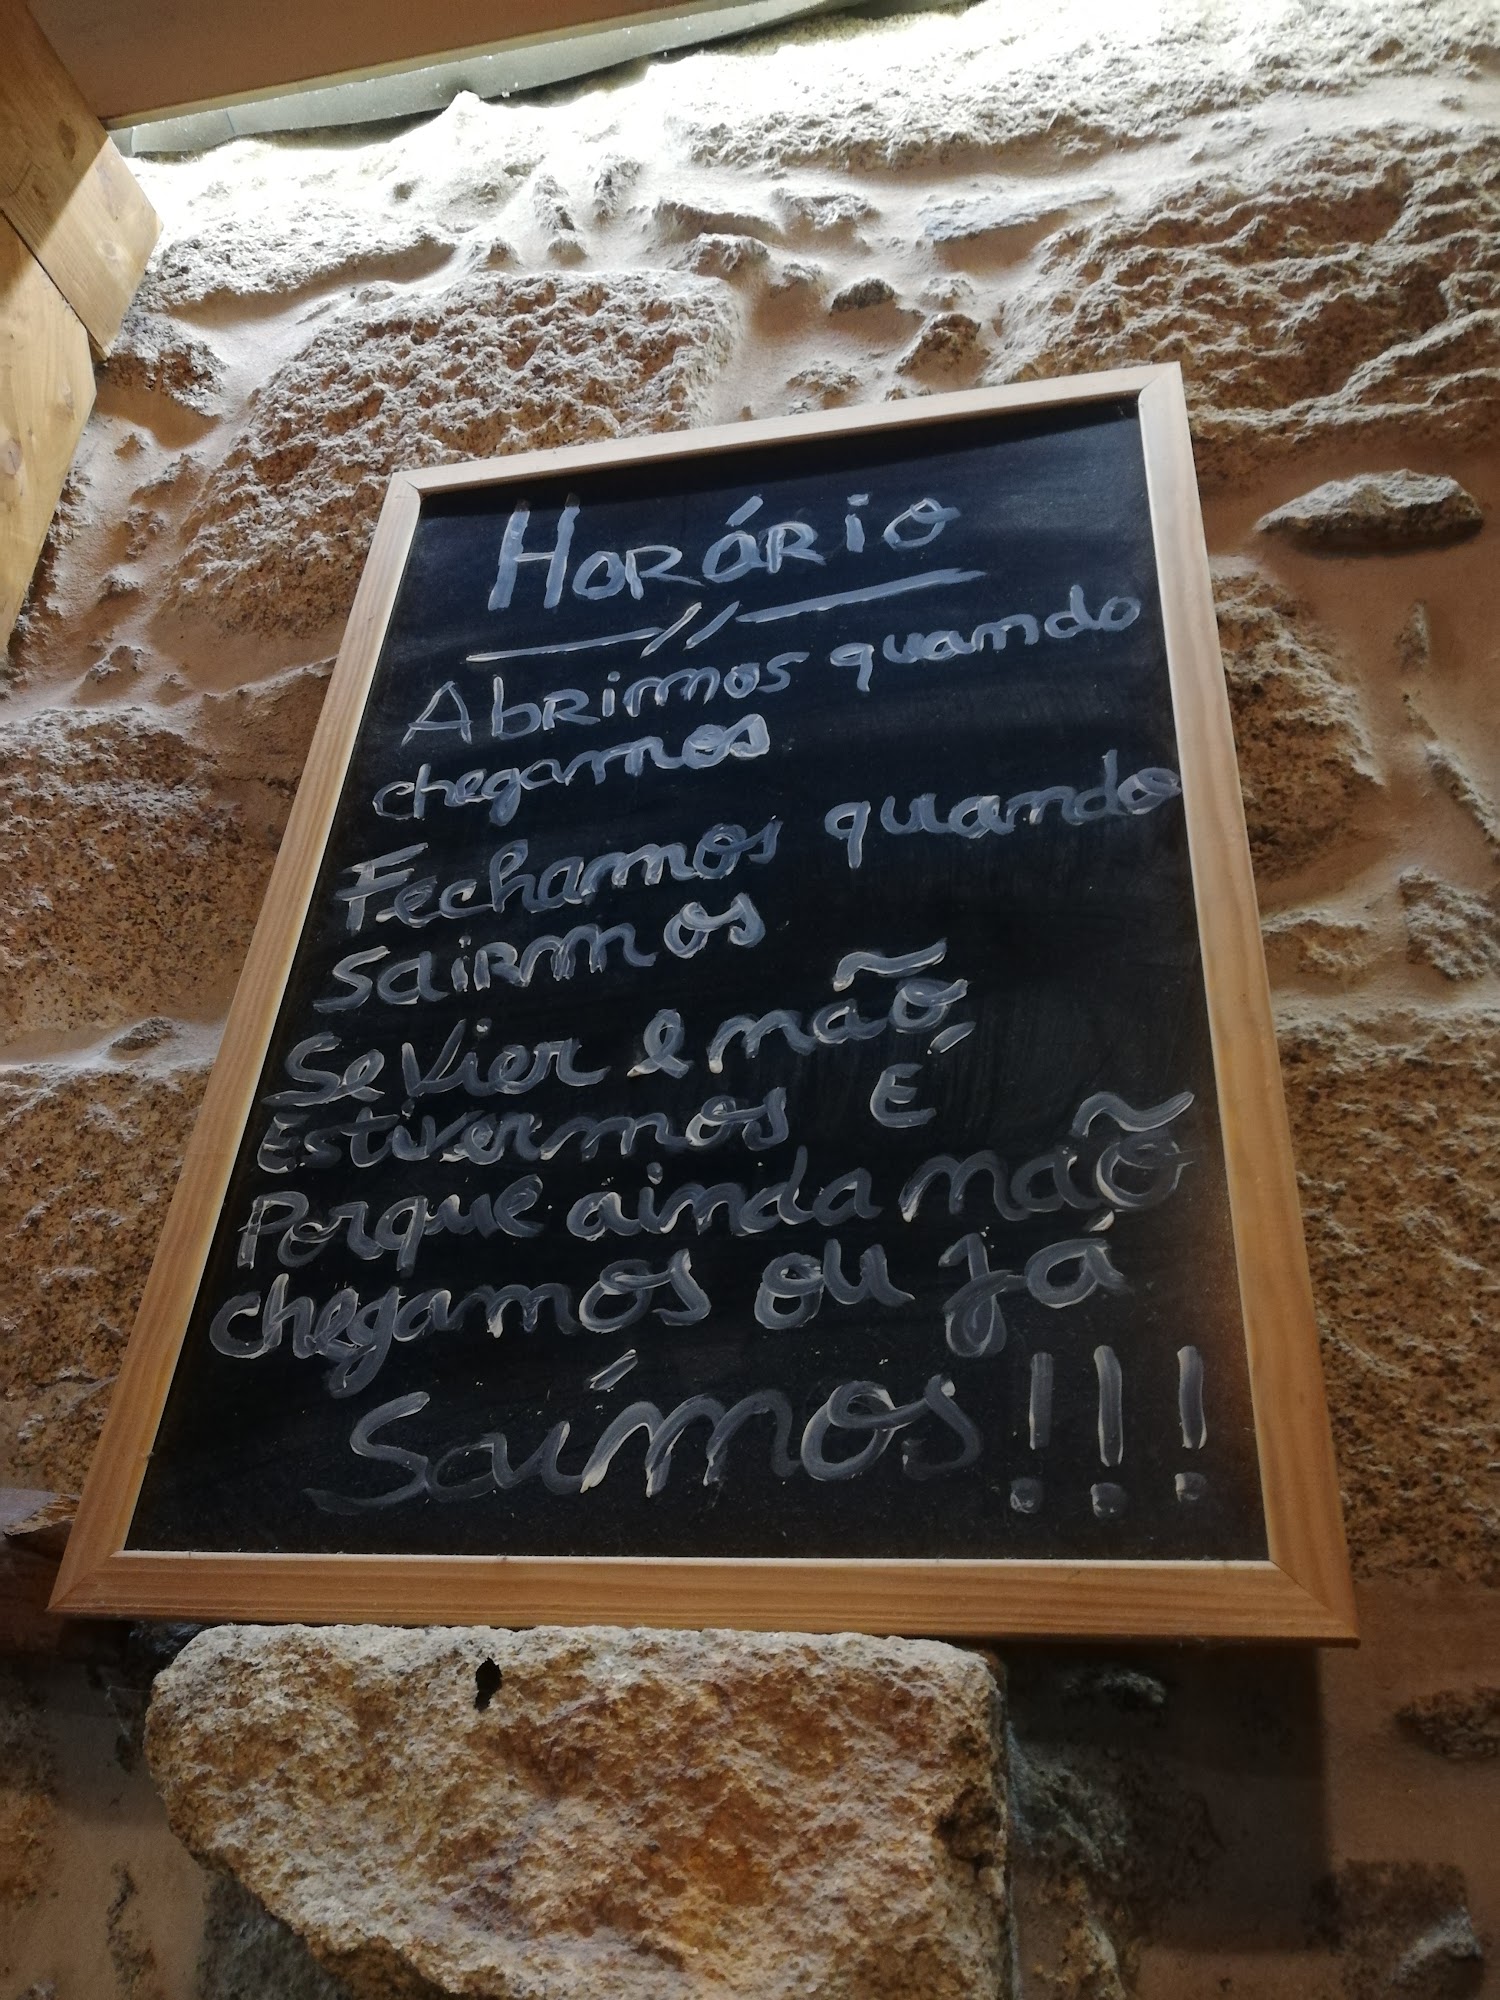 Horário
Abrimos quando
chegamos
Fechamos quando
Sairmos
Se Vier e não
Estivermos É
Porque ainda não
chegamos ou já
Saímos!!!